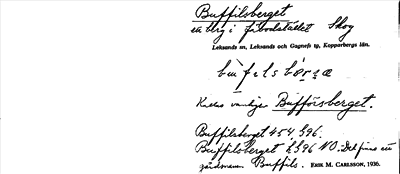 Buffilsberget
ett berg i fäbodstället Skog
Leksands sn, Leksands och Gagnefs tg, Kopparbergs län.
Kallas vanligen Bufförsberget.
Buffilsberget 454, 596.
Buffilsberget h 596 NO. Det finns ett
gårdsnamn Buffils. ERIK M. CARLSSON, 1930.